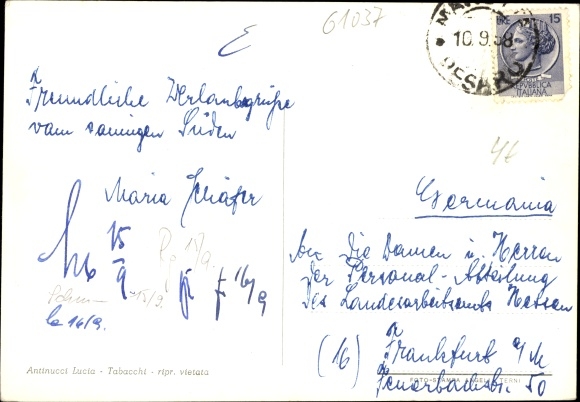 61037
E
10.9.58
PESARO
LIRE 15
REPVBBLICA
ITALIANA
Freundliche Urlaubsgrüße
vom sonnigen Süden
Maria Schäfer
4€
Germania
An die Damen u. Herren
der Personal-Abteilung
des Landesarbeitsamts Hessen
(16) Frankfurt a/M
Feuerbachstr. 50
15/9
15/9.
16/9
15/9.
16/9.
Antinucci Lucia - Tabacchi - ripr. vietata